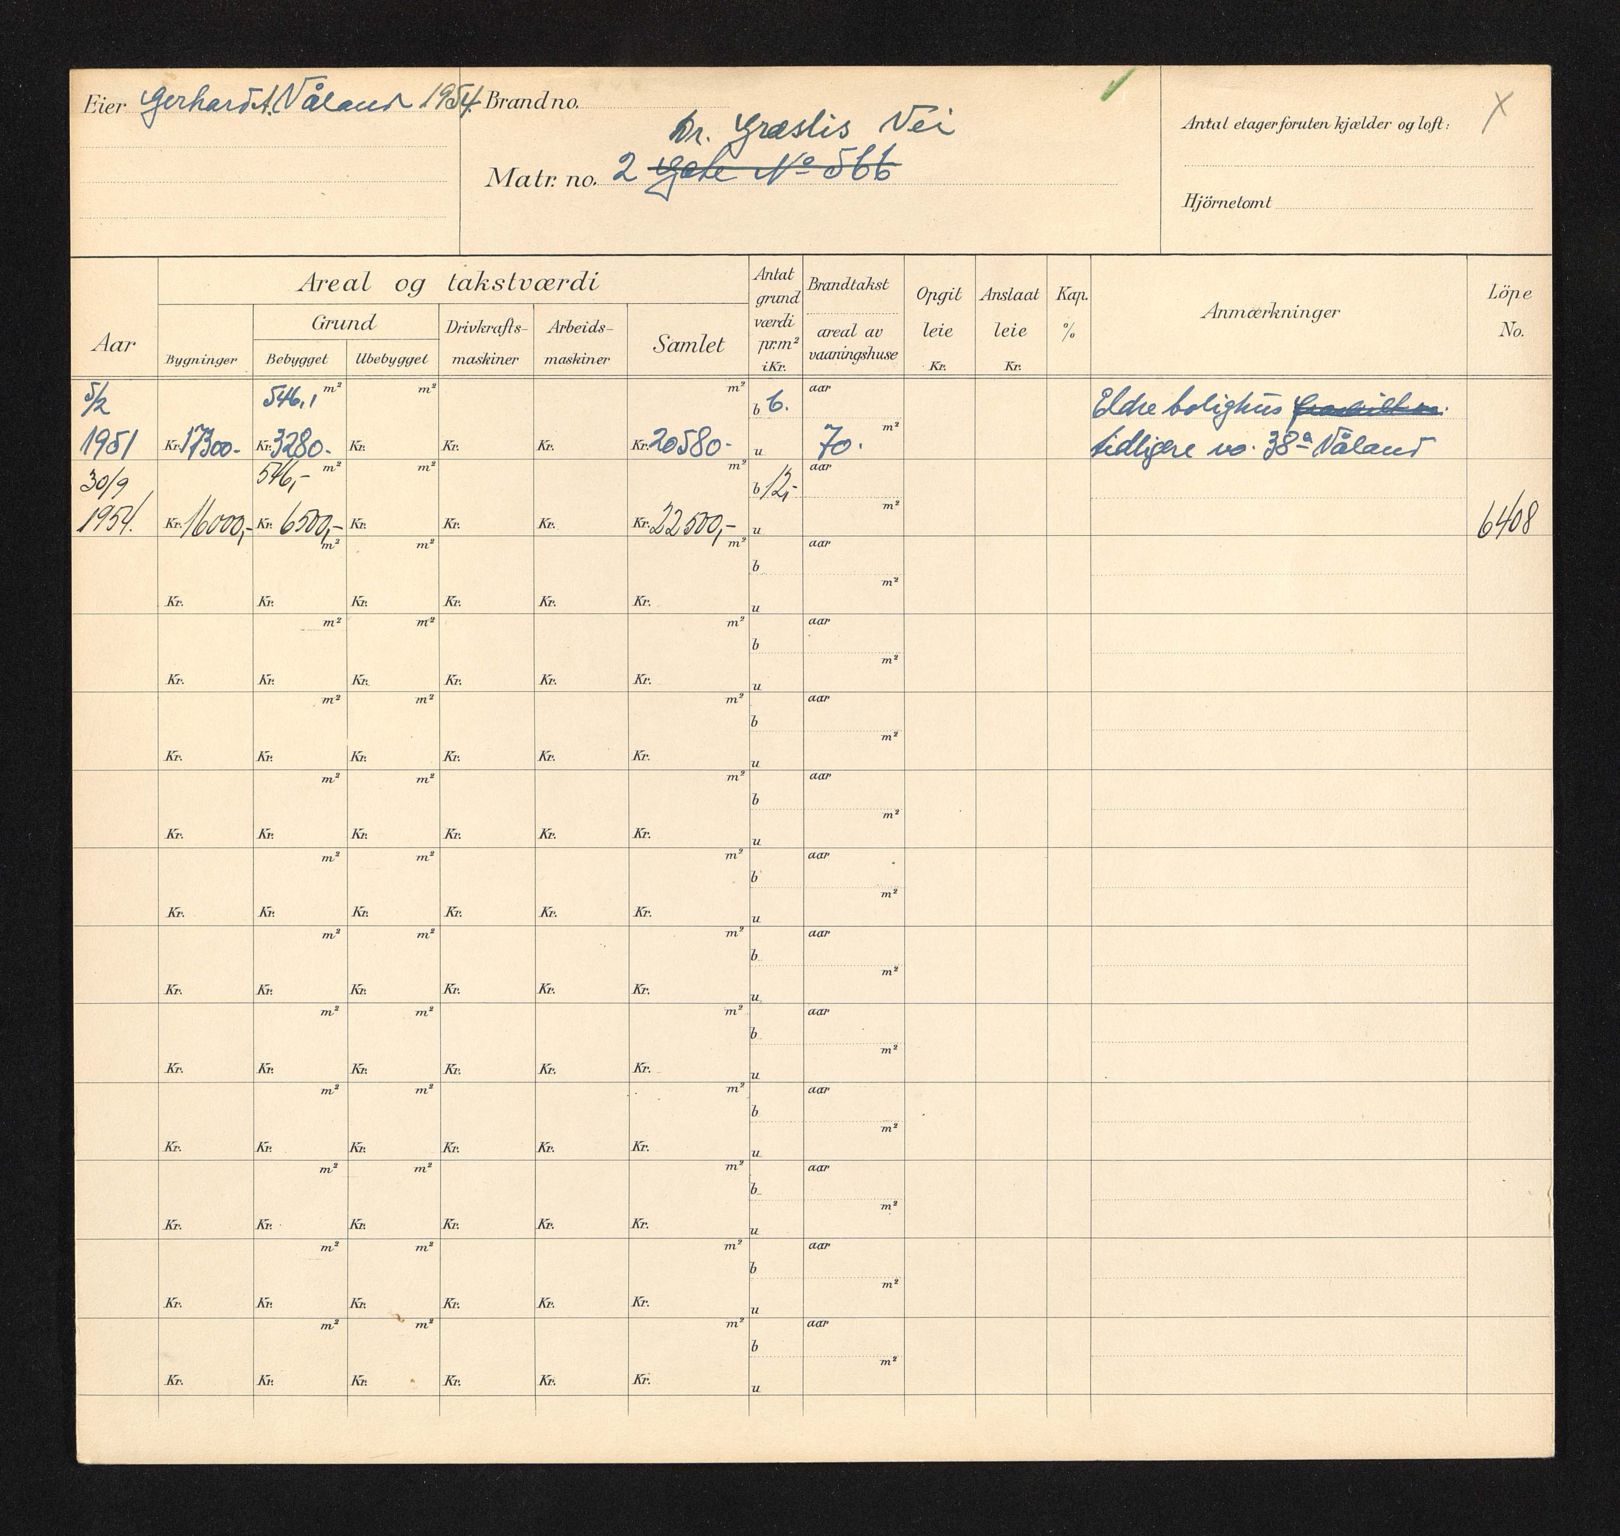 Eier Gerhard A. Våland 1954. Brand no.
Dr. Græslis Vei
Matr. no. 2 Gate No 566
Antal etager foruten kjælder og loft: X
Hjörnetomt
Aar
Areal og takstværdi
Grund
Bygninger Bebygget Ubebygget
Drivkrafts-maskiner
Arbeids-maskiner
Samlet
Antat grund værdi pr. m² i Kr.
Brandtakst
areal av vaaningshuse
Opgit leie Kr.
Anslaat leie Kr.
Kap. %
Anmærkninger
Löpe No.
5/2 546,1 m² m² m² b 6. aar Eldre bolighus
1951 Kr. 17300.- Kr. 3280.- Kr. Kr. Kr. Kr. 20580.- u 70. m² tidligere no. 38a Våland
30/9 546,- m² m² m² b 12,- aar
1954. Kr. 16000,- Kr. 6500,- Kr. Kr. Kr. Kr. 22500,- u m² 6408
m² m² m² b aar
Kr. Kr. Kr. Kr. Kr. Kr. u m²
m² m² m² b aar
Kr. Kr. Kr. Kr. Kr. Kr. u m²
m² m² m² b aar
Kr. Kr. Kr. Kr. Kr. Kr. u m²
m² m² m² b aar
Kr. Kr. Kr. Kr. Kr. Kr. u m²
m² m² m² b aar
Kr. Kr. Kr. Kr. Kr. Kr. u m²
m² m² m² b aar
Kr. Kr. Kr. Kr. Kr. Kr. u m²
m² m² m² b aar
Kr. Kr. Kr. Kr. Kr. Kr. u m²
m² m² m² b aar
Kr. Kr. Kr. Kr. Kr. Kr. u m²
m² m² m² b aar
Kr. Kr. Kr. Kr. Kr. Kr. u m²
m² m² m² b aar
Kr. Kr. Kr. Kr. Kr. Kr. u m²
m² m² m² b aar
Kr. Kr. Kr. Kr. Kr. Kr. u m²